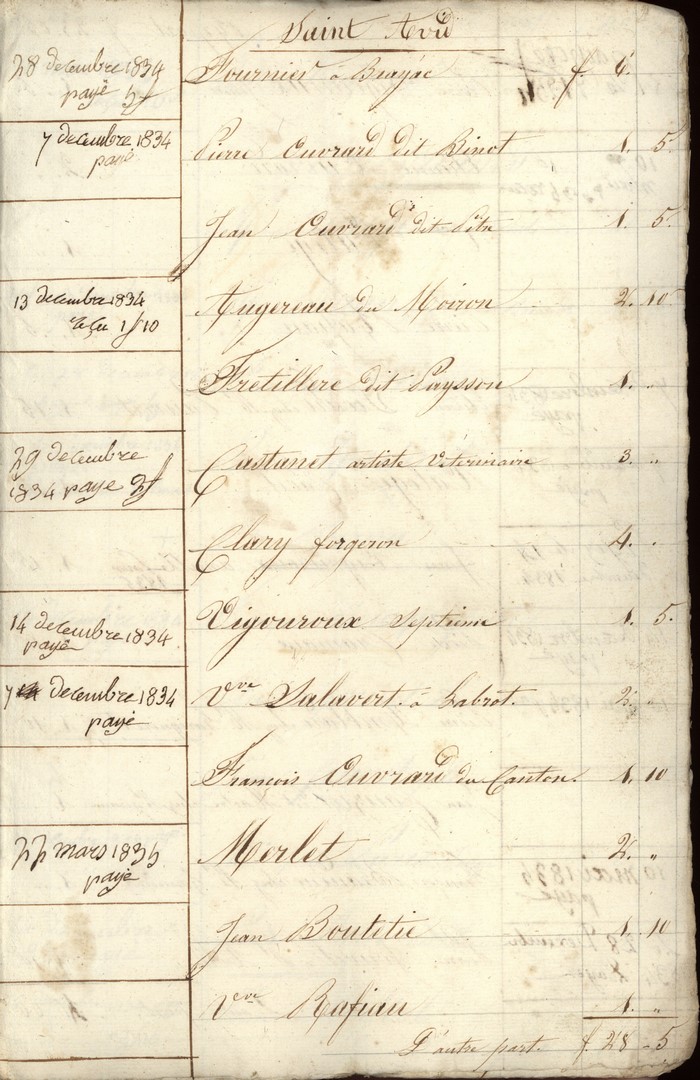 Saint Avid
28 decembre 1834
payé 5f
Fournier à Brayac f. 4.
7 decembre 1834
payé
Pierre Ouvrard dit Binot 1. 5.
Jean Ouvrard dit 1. 5.
13 decembre 1834
reçu 1f 10
Augereau du Moiron 2. 10
Fretillere dit Paysson 1. "
29 decembre
1834 payé 3f
Castanet artiste Véterinaire 3. "
Clary forgeron 4. "
14 decembre 1834
payé
Vigouroux Septieme 1. 5.
7 decembre 1834
payé
Vve Salavert à Labrot. 2. "
François Ouvrard du Canton. 1. 10
22 mars 1835
payé
Merlet 2. "
Jean Boutetie 1. 10
Vve Rafiau 1. "
D'autre part. f. 28 - 5